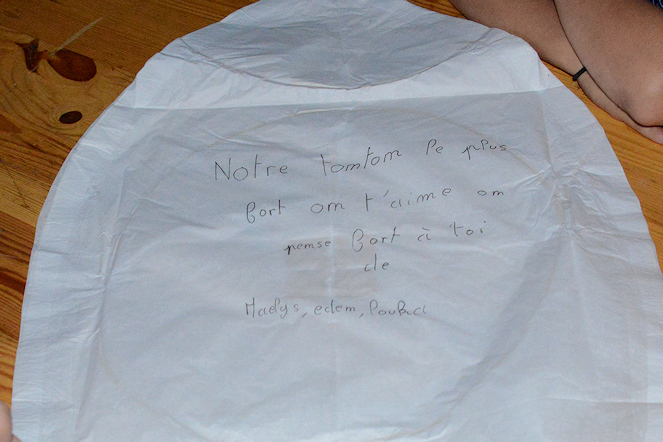 Notre tomtom le plus
fort om t'aime om
pemse fort à toi
de
Maelys, edem, louka